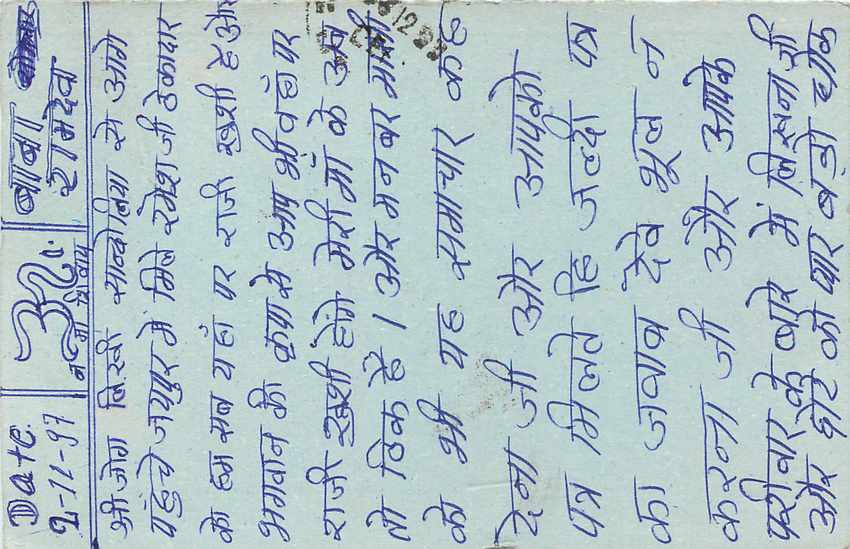 Date
2-12-97
ॐ
नमो शिवाय
बाबा
रामदेव
श्री जोग लिखी सान्डोलिया से आगे
पंहुचे जयपुर में मिले रमेश जी ठेकादार
के हम सब यहां पर राजी खुशी है और
भगवान की कृपा से आप भी वहाँ पर
राजी खुशी होंगे मेरी माँ के अब
तो ठिक है। और मन बर भाभी
को भी यह समाचार कह
देना जी और आपको
पत्र मिलते हि जल्दी पत्र
का जवाब देवे भूल न
करना जी और आपके
परीवार के बारे में लिखना जी
और छोटे को प्यार बड़ो धोक